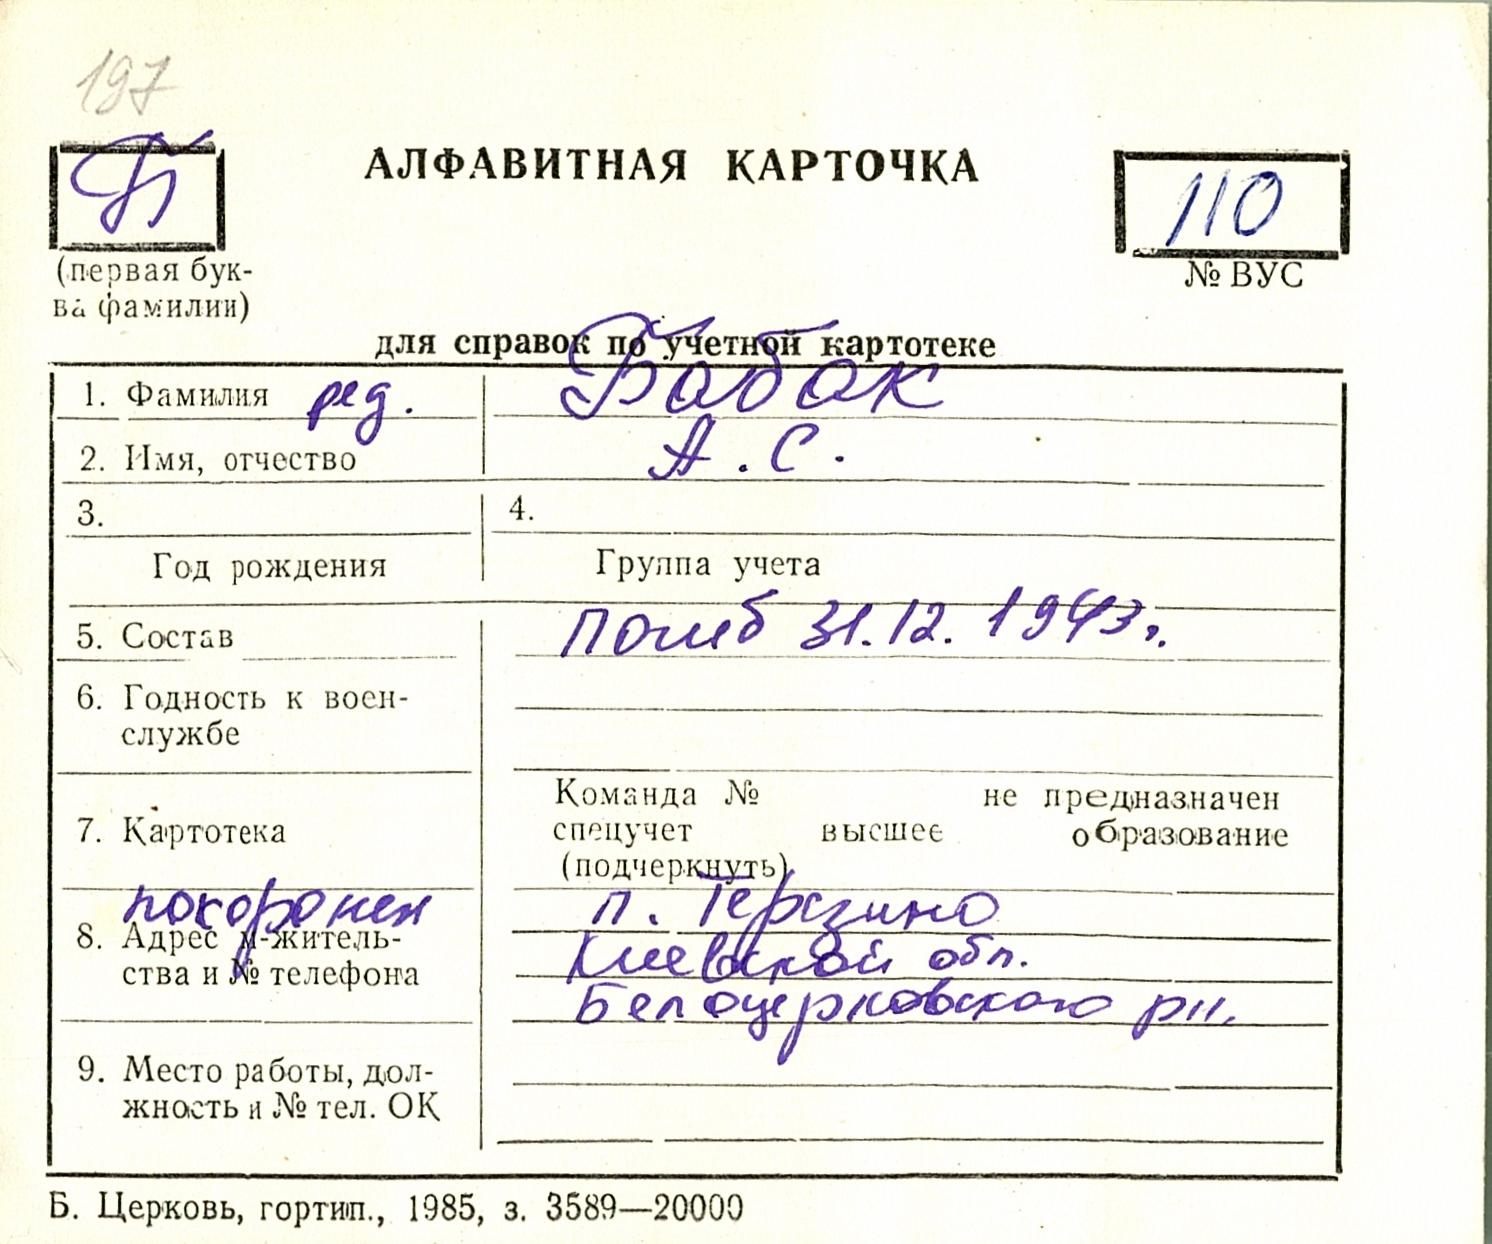 197
Б
АЛФАВИТНАЯ КАРТОЧКА
110
(первая бук-
ва фамилии)
№ ВУС
для справок по учетной картотеке
1. Фамилия ряд. Бабак
2. Имя, отчество А. С.
3. 4.
Год рождения Группа учета
5. Состав погиб 31.12. 1943г.
6. Годность к воен-
службе
Команда № не предназначен
7. Картотека спецучет высшее образование
(подчеркнуть)
похоронен п. Терезино
8. Адрес м-житель- Киевской обл.
ства и № телефона Белоцерковского рн.
9. Место работы, дол-
жность и № тел. ОК
Б. Церковь, гортип., 1985, з. 3589—20000